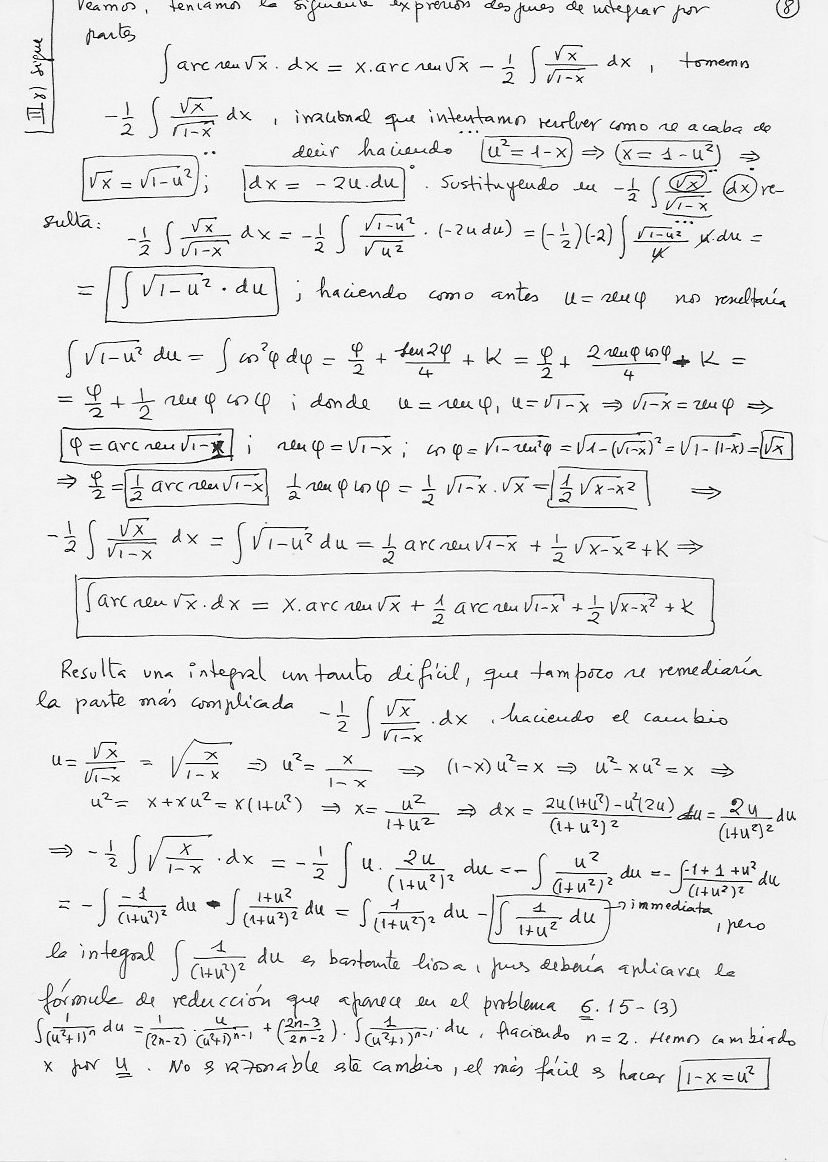 Veamos, teníamos la siguiente expresión después de integrar por (8)
III 8) sigue
partes
∫ arc sen √x · dx = x. arc sen √x − 1/2 ∫ √x/√(1−x) dx , tomemos
−1/2 ∫ √x/√(1−x) dx , irracional que intentamos resolver como se acaba de
decir haciendo (u² = 1−x) ⇒ (x = 1−u²) ⇒
√x = √(1−u²) ; dx = −2u.du . Sustituyendo en −1/2 ∫ √x/√(1−x) dx re-
sulta: −1/2 ∫ √x/√(1−x) dx = −1/2 ∫ √(1−u²)/√u² · (−2u du) = (−1/2)(−2) ∫ √(1−u²)/u u.du =
= ∫ √(1−u²) · du ; haciendo como antes u = sen φ nos resultaría
∫ √(1−u²) du = ∫ cos²φ dφ = φ/2 + sen 2φ/4 + K = φ/2 + 2 sen φ cos φ/4 + K =
= φ/2 + 1/2 sen φ cos φ ; donde u = sen φ, u = √(1−x) ⇒ √(1−x) = sen φ ⇒
φ = arc sen √(1−x) ; sen φ = √(1−x) ; cos φ = √(1−sen²φ) = √(1−(√(1−x))²) = √(1−(1−x)) = √x
⇒ φ/2 = 1/2 arc sen √(1−x) 1/2 sen φ cos φ = 1/2 √(1−x) . √x = 1/2 √(x−x²) ⇒
−1/2 ∫ √x/√(1−x) dx = ∫ √(1−u²) du = 1/2 arc sen √(1−x) + 1/2 √(x−x²) + K ⇒
∫ arc sen √x . dx = x. arc sen √x + 1/2 arc sen √(1−x) + 1/2 √(x−x²) + K
Resulta una integral un tanto difícil, que tampoco se remediaría
la parte más complicada −1/2 ∫ √x/√(1−x) . dx . haciendo el cambio
u = √x/√(1−x) = √(x/(1−x)) ⇒ u² = x/(1−x) ⇒ (1−x)u² = x ⇒ u²−xu² = x ⇒
u² = x+xu² = x(1+u²) ⇒ x = u²/(1+u²) ⇒ dx = (2u(1+u²)−u²(2u))/(1+u²)² du = 2u/(1+u²)² du
⇒ −1/2 ∫ √(x/(1−x)) · dx = −1/2 ∫ u. 2u/(1+u²)² du = −∫ u²/(1+u²)² du = −∫ (−1+1+u²)/(1+u²)² du
= −∫ −1/(1+u²)² du − ∫ (1+u²)/(1+u²)² du = ∫ 1/(1+u²)² du − ∫ 1/(1+u²) du → immediata , pero
la integral ∫ 1/(1+u²)² du es bastante liosa, pues debería aplicarse la
fórmula de reducción que aparece en el problema 6.15-(3)
∫ 1/(u²+1)ⁿ du = 1/(2n−2) . u/(u²+1)ⁿ⁻¹ + ((2n−3)/(2n−2)) . ∫ 1/(u²+1)ⁿ⁻¹ . du . haciendo n=2. Hemos cambiado
x por u . No es razonable este cambio, el más fácil es hacer 1−x = u²